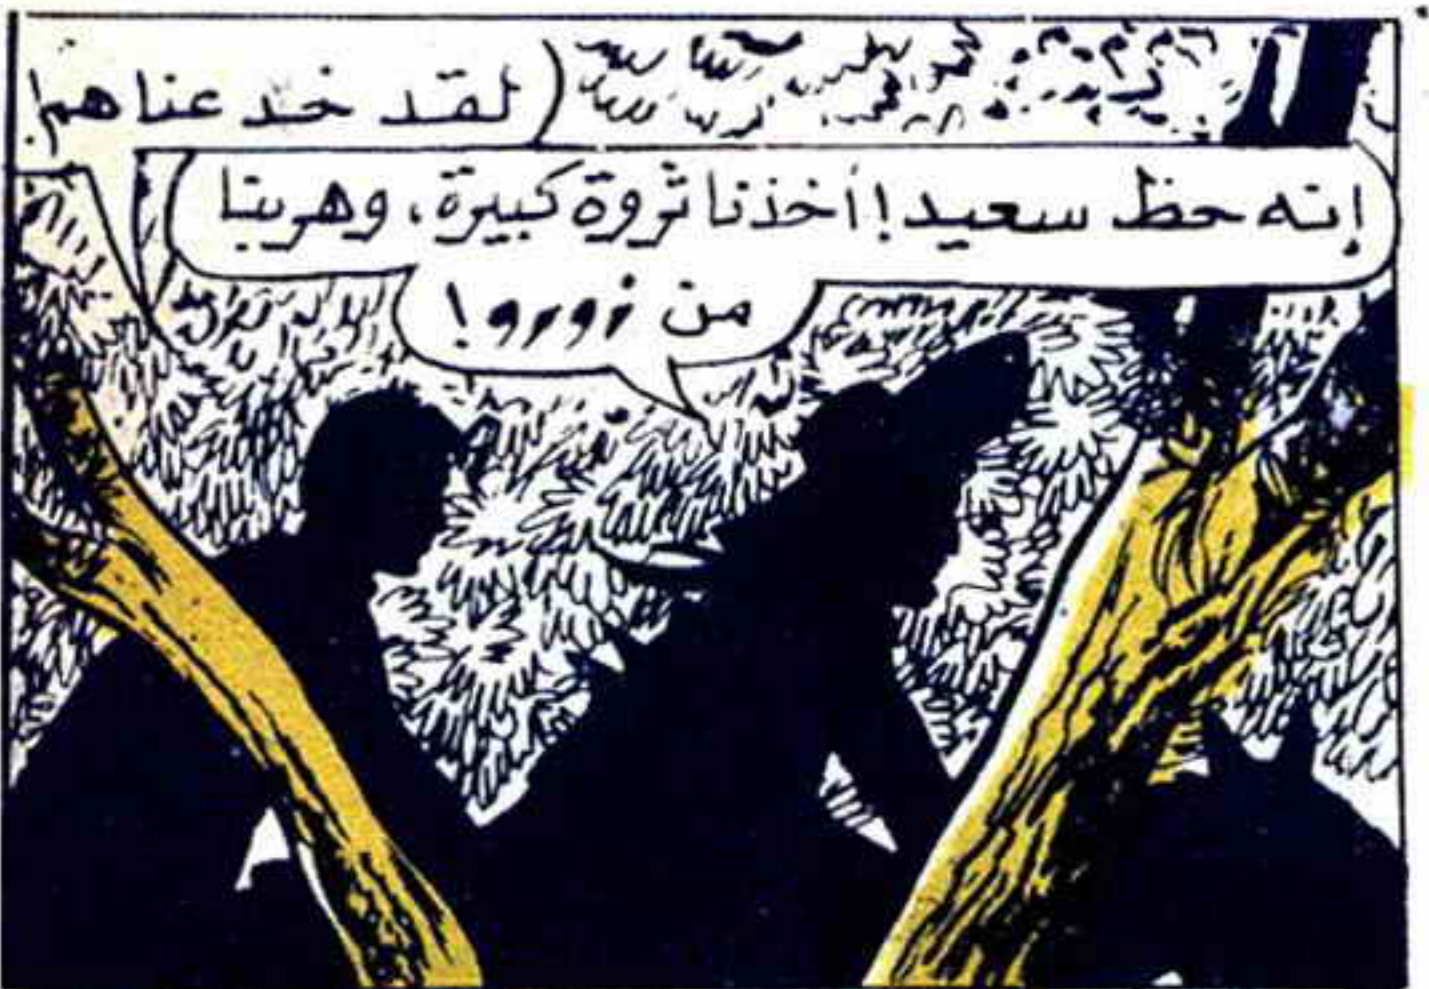 لقد خدعناهم!
إنه حظ سعيد! أخذنا ثروة كبيرة، وهربنا
من زورو!